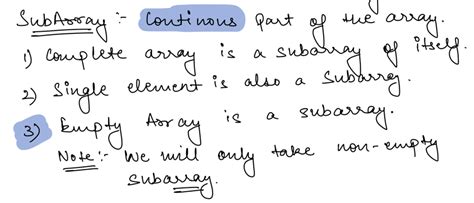 SubArray :- Continous Part of the array.
1) Complete array is a subarray of itself.
2) Single element is also a Subarray.
3) Empty Array is a subarray.
Note:- We will only take non-empty
subarray.